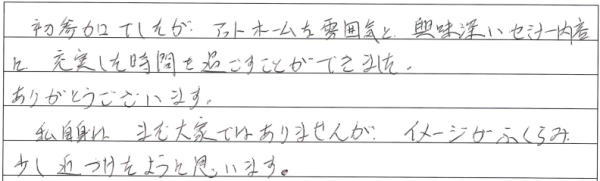 初参加でしたが、アットホームな雰囲気と、興味深いセミナー内容
に 充実した時間を過ごすことができました。
ありがとうございます。
私自身は まだ大家ではありませんが、イメージがふくらみ
少し近づけたように思います。